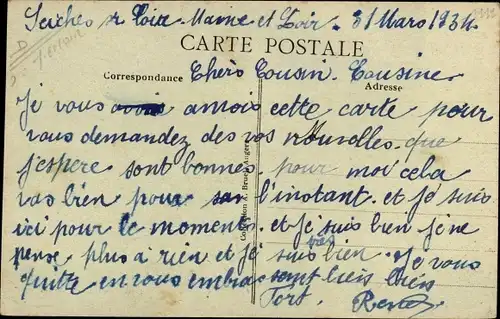 Seiches s Loir. Maine et Loir. 31 Mars 1934
CARTE POSTALE
Correspondance Chers Cousin. Cousine Adresse
Je vous amois cette carte pour
vous demandez des vos Nouvelles. que
j'espere sont bonnes. pour moi cela
vas bien pour l'instant. et je suis
ici pour le moment. et je suis bien je ne
pense plus à rien et je suis très bien. je vous
quitte en vous embrassent biens biens
Fort. René
Collection A. Bruel, Angers